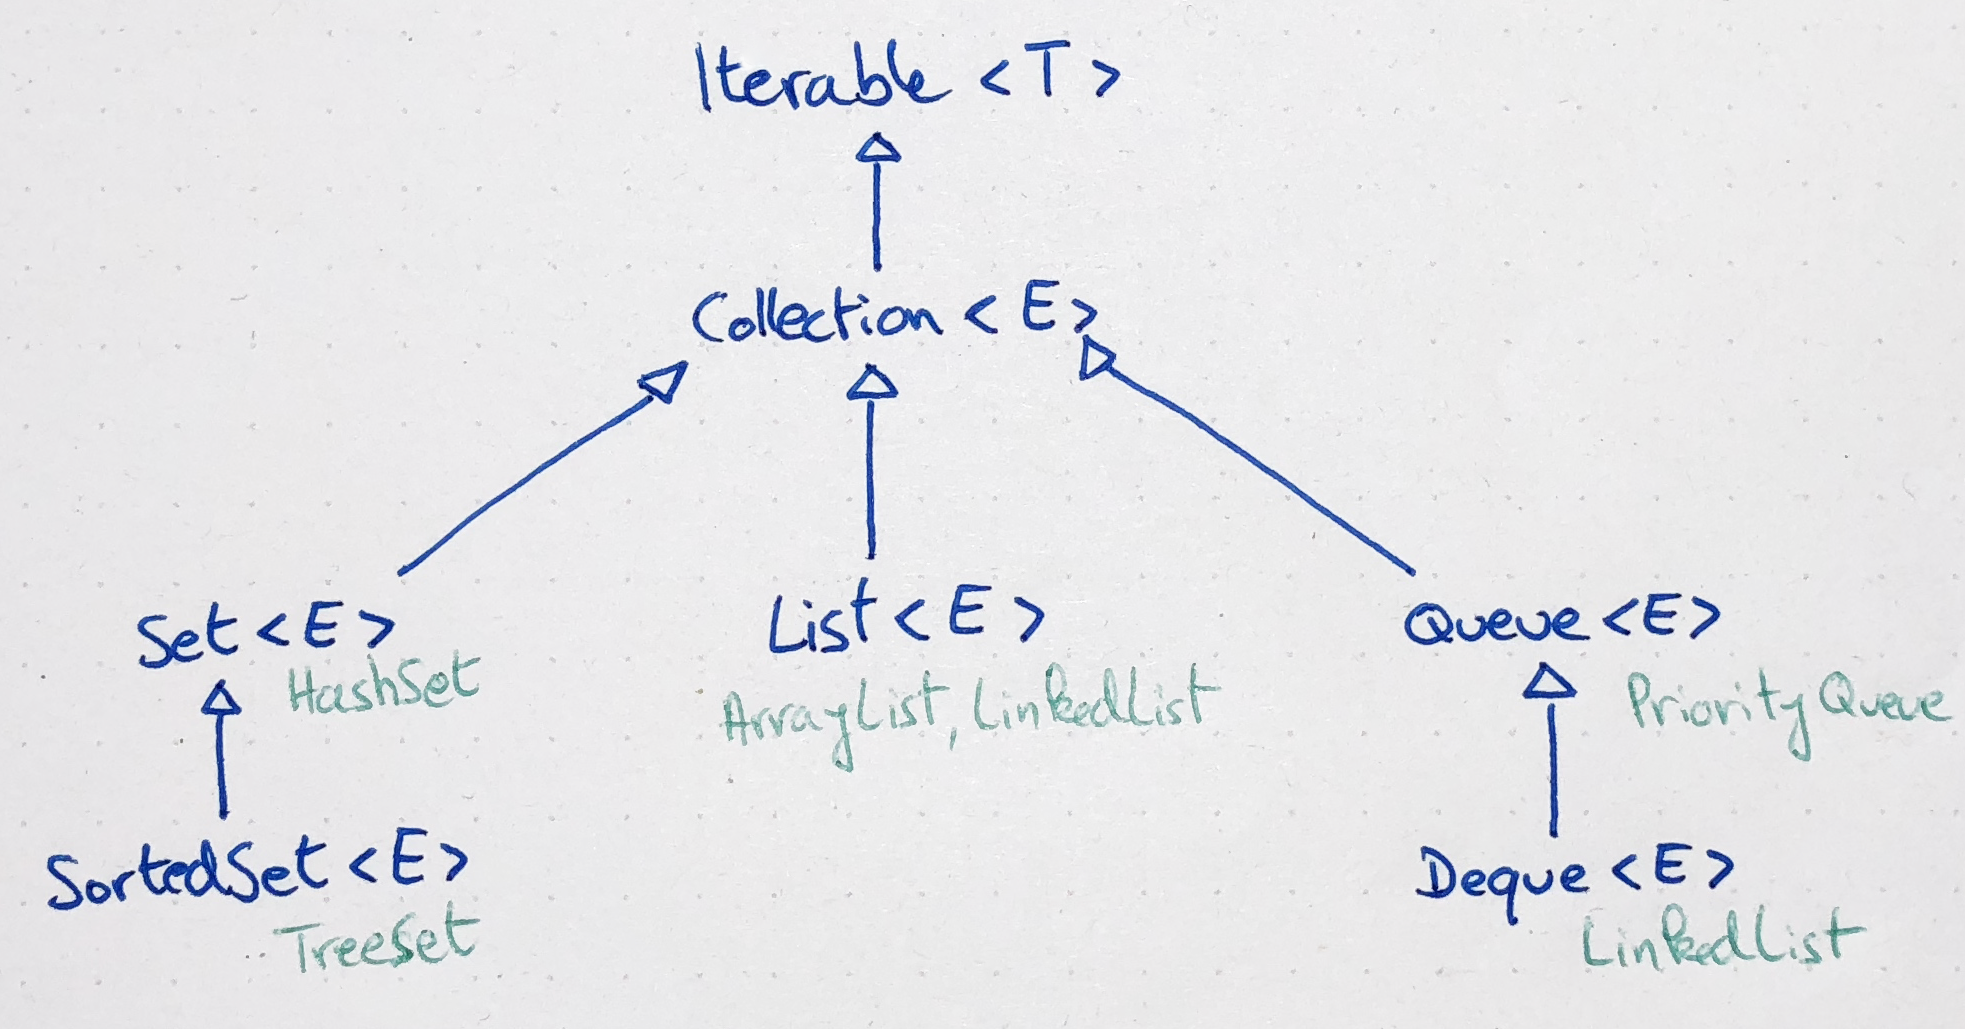 Iterable <T>
Collection <E>
Set <E>
HashSet
List <E>
ArrayList, LinkedList
Queue <E>
PriorityQueue
SortedSet <E>
TreeSet
Deque <E>
LinkedList